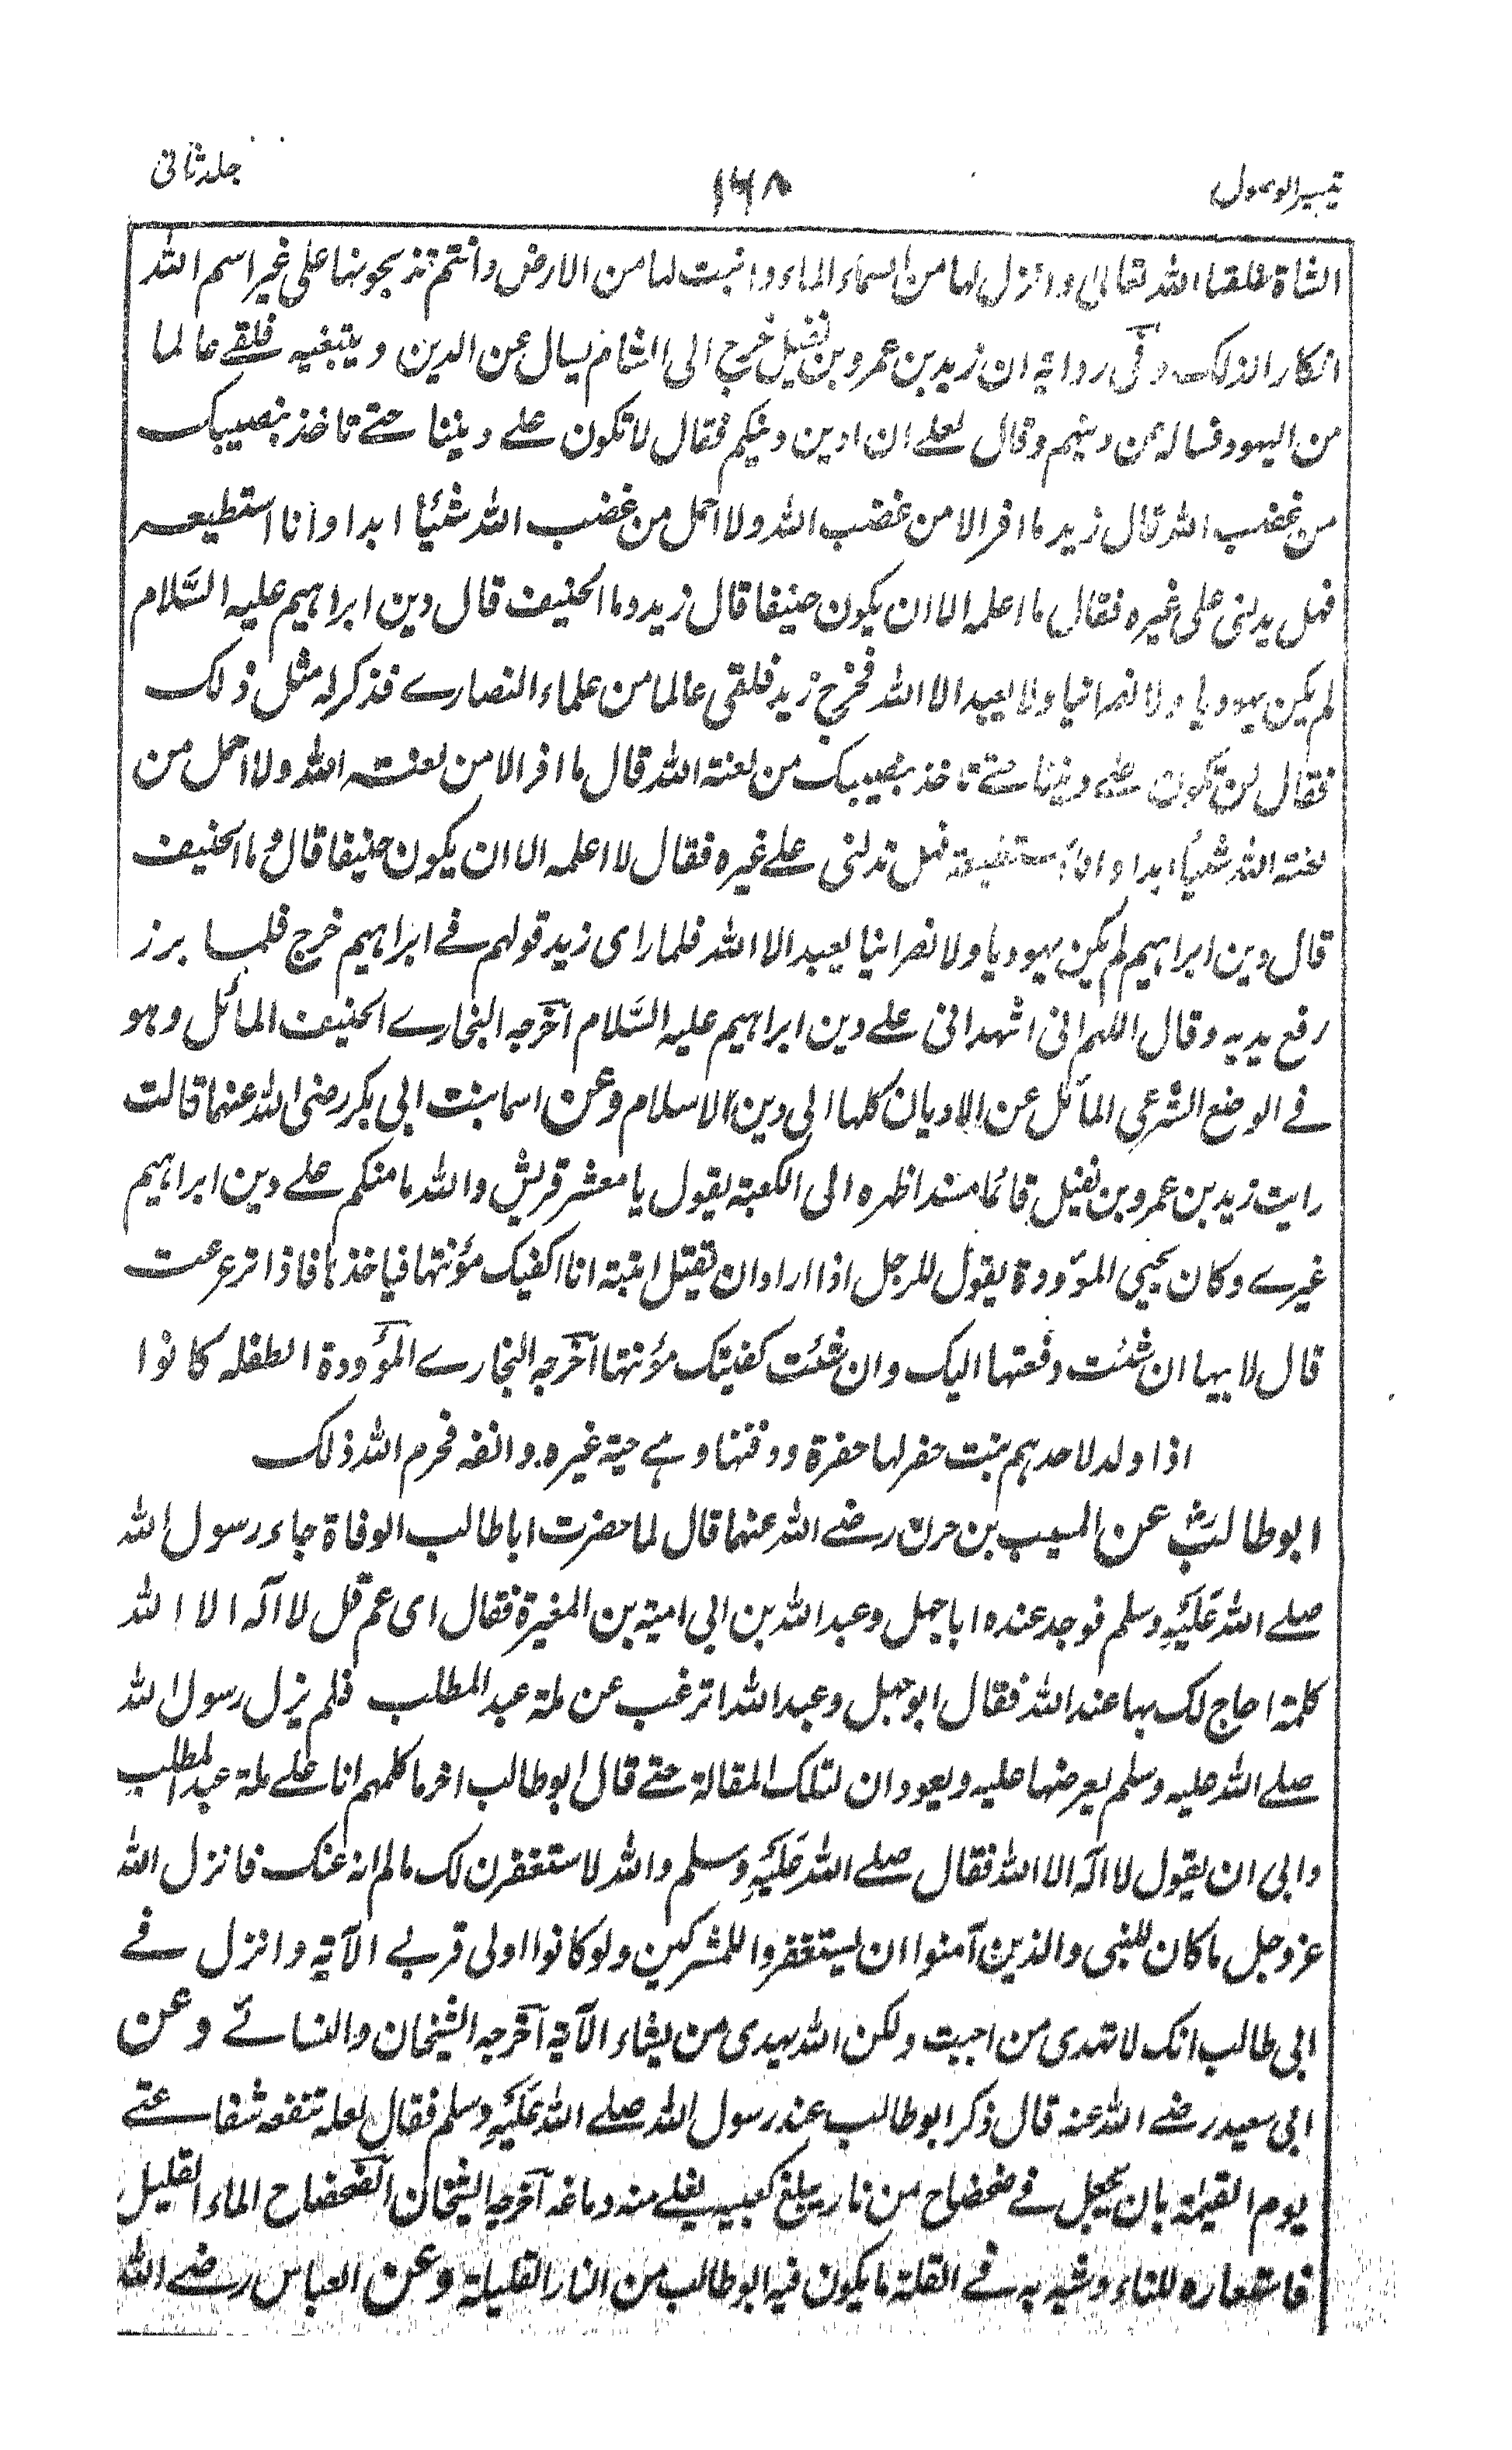 تیسیر الوصول ۱۶۸ جلد ثانی
الشاة خلقها الله تعالی وانزل لها من السماء الماء وانبت لها من الارض وانتم تذبحونها علی غیر اسم الله
انکارا لذلک وفی روایة ان زید بن عمرو بن نفیل خرج الی الشام یسال عن الدین ویتبغیه فلقے عالما
من الیهود فساله عن دینهم وقال لعلے ان ادین دینکم فقال لا تکون علے دیننا حتے تاخذ بنصیبک
من غضب الله قال زید ما افر الا من غضب الله ولا احمل من غضب الله شئیا ابدا وانا استطیعه
فهل یدلنی علی غیره فقال ما اعلمه الا ان یکون حنیفا قال زید وما الحنیف قال دین ابراهیم علیه السَّلام
لم یکن یهودیا ولا نصرانیا ولا یعبد الا الله فخرج زید فلقی عالما من علماء النصارے فذکر له مثل ذلک
فقال لن تکون علے دیننا حتے تاخذ بنصیبک من لعنة الله قال ما افر الا من لعنة الله ولا احمل من
لعنة الله شئیا ابدا وانا استطیعه فهل تدلنی علے غیره فقال لا اعلمه الا ان یکون حنیفا قال وما الحنیف
قال دین ابراهیم لم یکن یهودیا ولا نصرانیا یعبد الا الله فلما رای زید قولهم فے ابراهیم خرج فلما برز
رفع یدیه وقال اللهم انی اشهد انی علے دین ابراهیم علیه السَّلام آخرجه البخارے الحنیف المائل وهو
فے الوضع الشرعی المائل عن الادیان کلها الی دین الاسلام وعن اسما بنت ابی بکر رضی الله عنهما قالت
رایت زید بن عمرو بن نفیل قائما مسندا ظهره الی الکعبة یقول یا معشر قریش والله ما منکم علے دین ابراهیم
غیرے وکان یحیی الموؤدة یقول للرجل اذا اراد ان تقیتل ابنته انا اکفیک مؤنتها فیاخذها فاذا ترعرعت
قال لابیها ان شئت دفعتها الیک وان شئت کفیتک مؤنتها آخرجه البخارے الموؤدة الطفله کانوا
اذا ولد لاحدهم بنت حفر لها حفرة ودفنها وهے حیة غیره وانفه فحرم الله ذلک
ابوطالب عن المسیب بن حزن رضے الله عنهما قال لما حضرت اباطالب الوفاة جاء رسول الله
صلے الله عَلَیْهِ وسلم فوجد عنده اباجهل وعبد الله بن ابی امیة بن المغیرة فقال ای عم قل لا آله الا الله
کلمة احاج لک بها عند الله فقال ابوجهل وعبد الله اترغب عن ملة عبد المطلب فلم یزل رسول الله
صلے الله علیه وسلم یعرضها علیه ویعودان لتلک المقالة حتے قال ابوطالب اخر ما کلمهم انا علے ملة عبد المطلب
وابی ان یقول لا آله الا الله فقال صلے الله عَلَیْهِ وسلم والله لاستغفرن لک ما لم انه عنک فانزل الله
عزوجل ما کان للنبی والذین آمنوا ان یستغفروا للمشرکین ولو کانوا اولی قربے الآیة وانزل فے
ابی طالب انک لا تهدی من احببت ولکن الله یهدی من یشاء الآیة آخرجه الشیخان والنسائے وعن
ابی سعید رضے الله عنه قال ذکر ابوطالب عند رسول الله صلے الله عَلَیْهِ وسلم فقال لعله تنفعه شفاعتے
یوم القیمة بان یجعل فے ضحضاح من نار یبلغ کعبیه یغلے منه دماغه آخرجه الشیخان الضحضاح الماء القلیل
فاستعاره للنار وشبه به فے القلة ما یکون فیه ابوطالب من النار القلیلة وعن العباس رضے الله